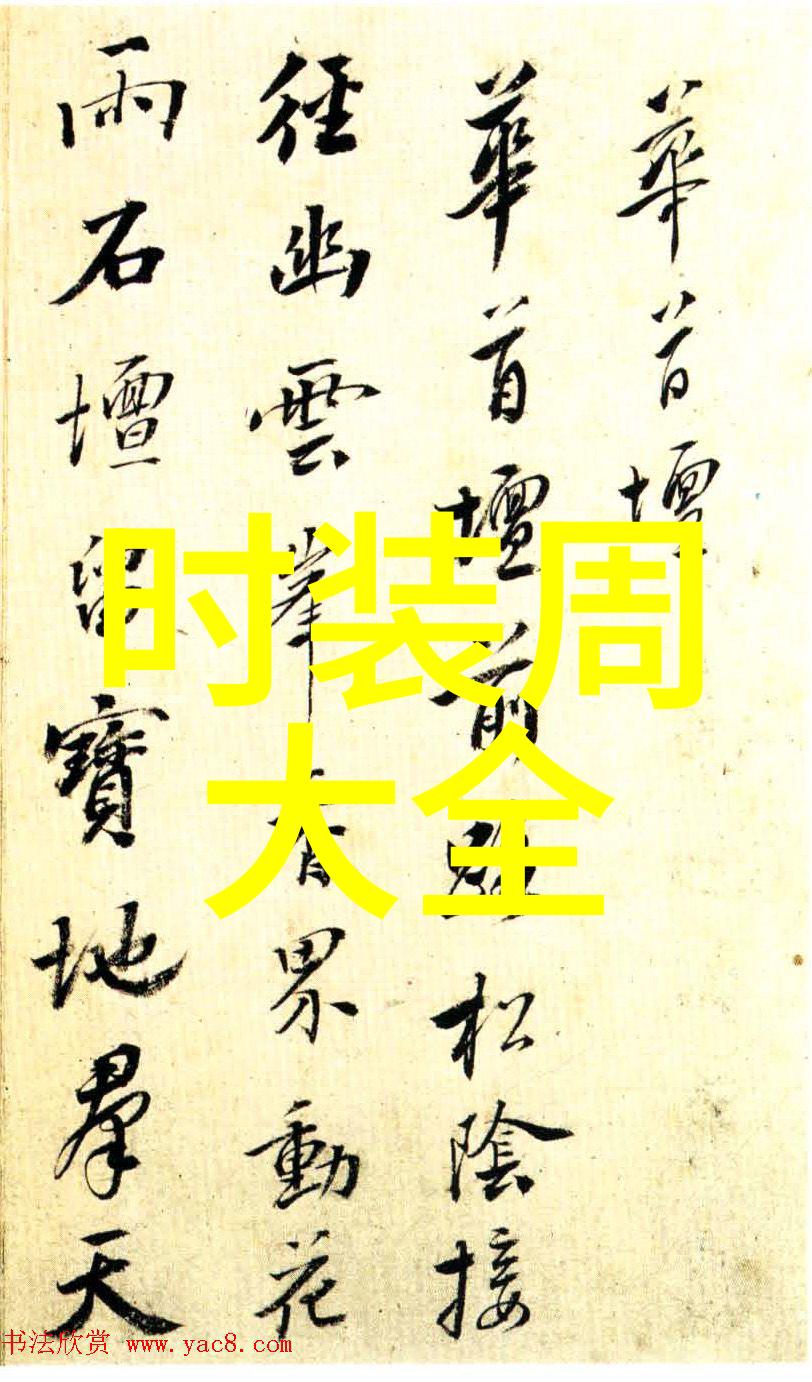 華首壇
華首壇前松陰接
徑幽雲峯香界動花
雨石壇留寶地羣天
时装周
大全
书法欣赏 www.yac8.com